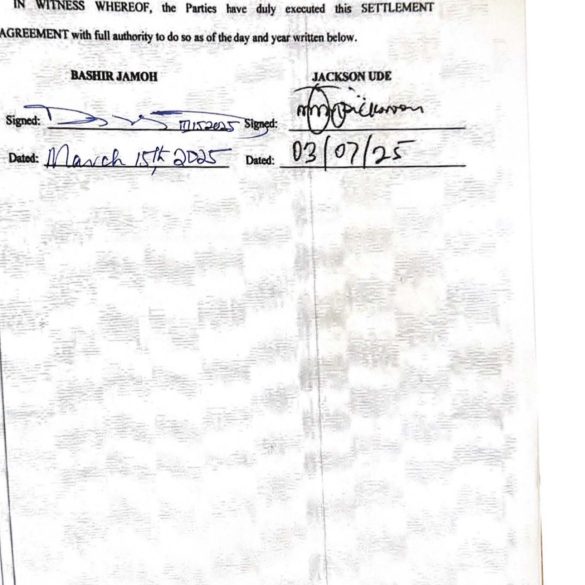 IN WITNESS WHEREOF, the Parties have duly executed this SETTLEMENT
AGREEMENT with full authority to do so as of the day and year written below.
BASHIR JAMOH JACKSON UDE
Signed: Signed:
Dated: March 15th, 2025 Dated: 03/07/25